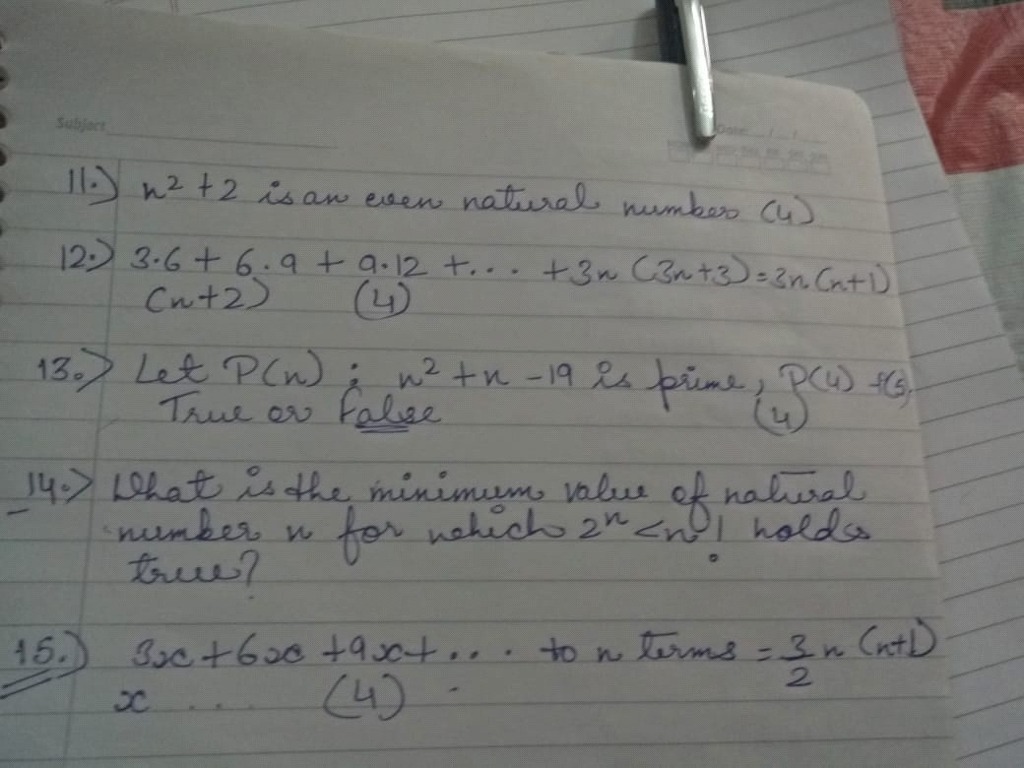 Subject
Date
11.) n² + 2 is an even natural number (4)
12.) 3.6 + 6.9 + 9.12 + ... + 3n (3n+3) = 3n(n+1)
(n+2) (4)
13.) Let P(n) : n² + n - 19 is prime, P(4)
True or False (4)
14.) What is the minimum value of natural
number n for which 2ⁿ < n! holds
true?
15.) 3x + 6x + 9x + ... to n terms = 3/2 n (n+1)
x ... (4)